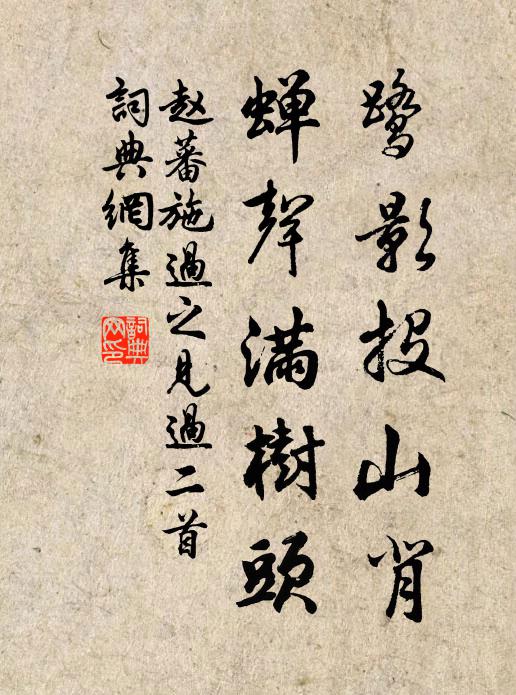 鹭影投山背
蝉聲满樹頭
赵蕃施過之見過二首
詞典網集
詞典網印